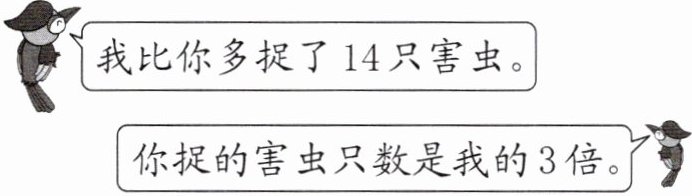 我比你多捉了14只害虫。
你捉的害虫只数是我的3倍。